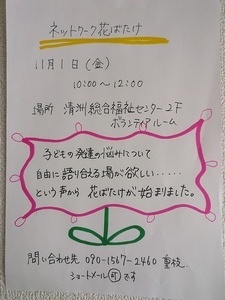 ネットワーク花ばたけ
11月1日(金)
10:00〜12:00
場所 清洲総合福祉センター2F
ボランティアルーム
子どもの発達の悩みについて
自由に語り合える場が欲しい.....
という声から 花ばたけが始まりました。
問い合わせ先 090-1567-2460
ショートメール可です